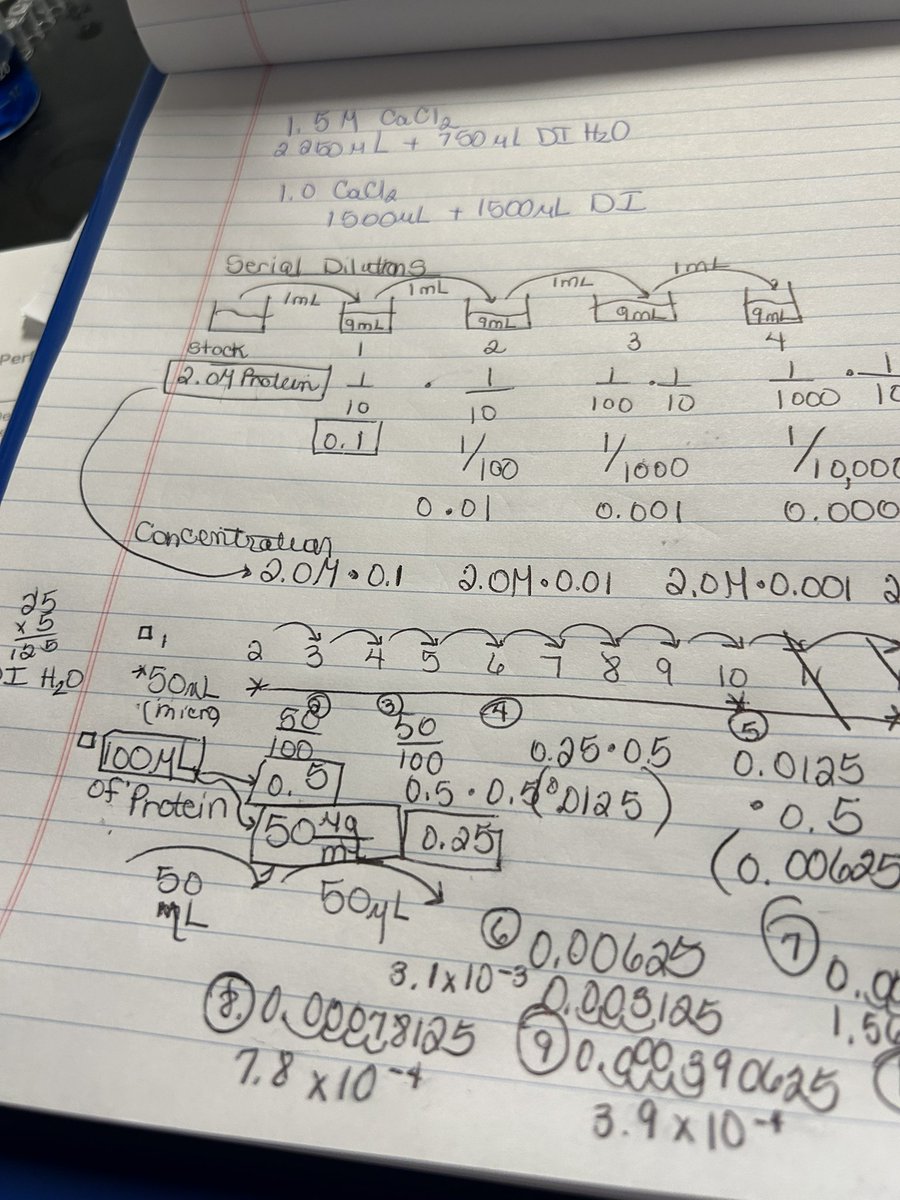 1.5 M CaCl2
2250µL + 750µL DI H2O
1.0 CaCl2
1500µL + 1500µL DI
Serial Dilutions
1mL 1mL 1mL 1mL
9mL 9mL 9mL 9mL
Stock 1 2 3 4
2.0M Protein 1/10 · 1/10 1/100 · 1/10 1/1000 · 1/10
0.1 1/100 1/1000 1/10,000
0.01 0.001 0.000
Concentration
2.0M·0.1 2.0M·0.01 2.0M·0.001 2
25
x 5
125
I H2O
1 2 3 4 5 6 7 8 9 10
*50µL * *
(micro
② 50/100 ③ 50/100 ④ 0.25·0.5 ⑤ 0.0125
100µL 0.5 0.5 · 0.5 (0.0125) · 0.5
of Protein 50 µg/mL 0.25 (0.00625
50 mL 50µL
⑥ 0.00625 ⑦ 0.00
3.1x10-3 0.003125 1.56
⑧ 0.00078125 ⑨ 0.000390625
7.8 x 10-4 3.9 x 10-4